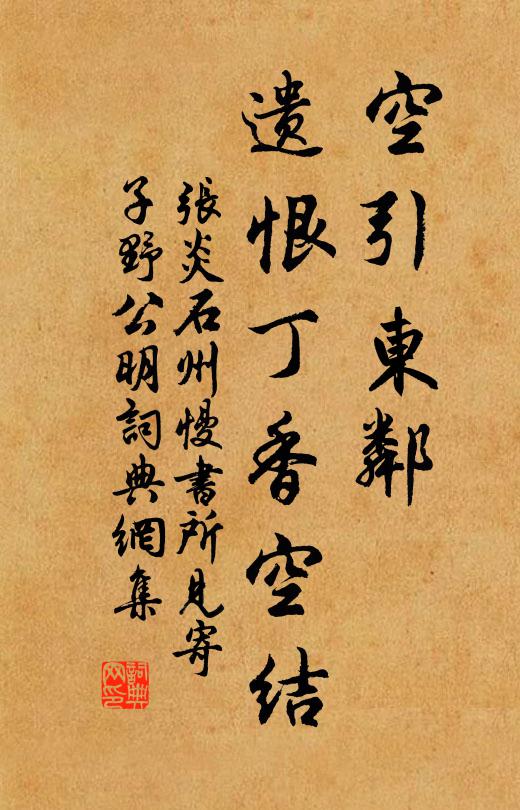 空引東鄰
遺恨丁香空結
張炎石州慢書所見寄
子野公明詞典網集
詞典網印